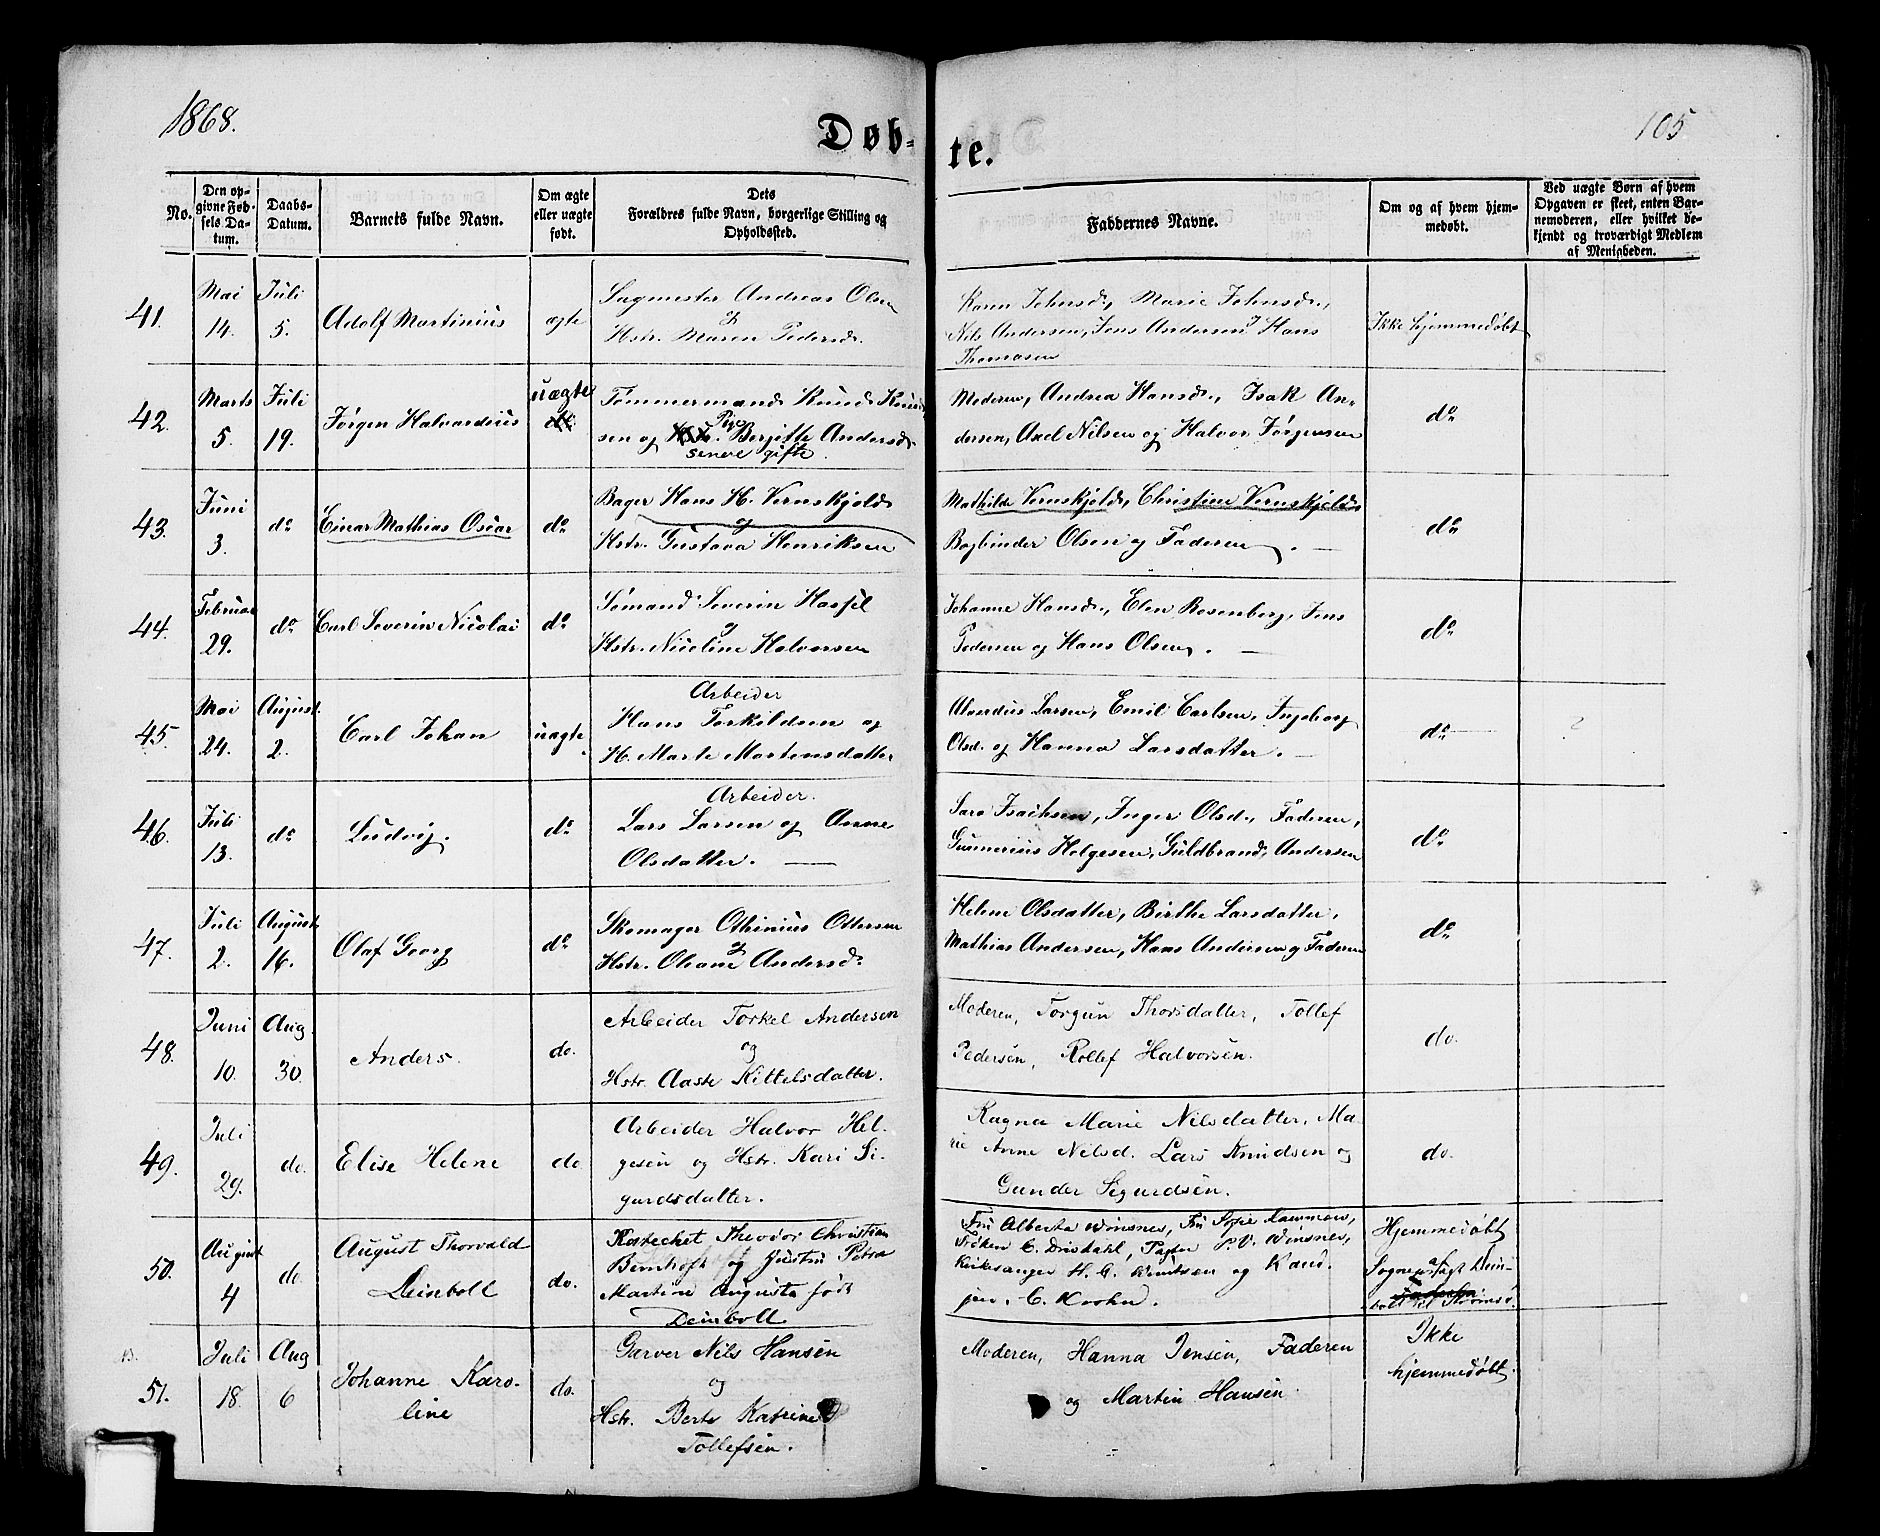 1868.
Døb-
te.
105
No.
Den op-
givne Fød-
sels Da-
tum.
Daabs-
Datum.
Barnets fulde Navn.
Om ægte
eller uægte
født.
Dets
Forældres fulde Navn, borgerlige Stilling og
Opholdssted.
Faddernes Navne.
Om og af hvem hjem-
medøbt.
Ved uægte Børn af hvem
Opgaven er skeet, enten Bar-
nemoderen, eller hvilket be-
kjendt og troværdigt Medlem
af Menigheden.
41.
Mai
14.
Juli
5.
Adolf Martinius
ægte
Sagmester Andreas Olsen
og
Hstr. Maren Pedersd.
Karen Johnsd., Marie Johnsd.,
Nils Andersen, Jens Andersen og Hans
Thomasen
Ikke hjemmedøbt
42.
Marts
5.
Juli
19.
Jørgen Halvardius
uægte
do
Tømmermand Knud Knud-
sen og Hstr. Pige Berjitte Andersd.
senere gifte.
Moderen, Andrea Hansd., Isak An-
dersen, Axel Nilsen og Halvor Jørgensen
do
43.
Juni
3.
do
Einar Mathias Oscar
do
Bager Hans H. Vernskjold
og
Hstr. Gustava Henriksen
Mathilde Vernskjold, Christine Vernskjold,
Bogbinder Olsen og Faderen.
do
44.
Februar
29.
do
Carl Severin Nicolai
do
Sømand Severin Hassel
og
Hstr. Nicoline Halvorsen
Johanne Hansd., Elen Rosenberg, Jens
Pedersen og Hans Olsen.
do
45.
Mai
24.
August
2.
Carl Johan
uægte
Arbeider
Hans Torkildsen og
H. Marte Mortensdatter
Larsen, Emil Carlsen, Ingeborg
Olsd. og Hanna Larsdatter.
do
?
46.
Juli
13.
do
Ludvig.
do
Arbeider.
Lars Larsen og Anne
Olsdatter.
Sara Isachsen, Inger Olsd., Faderen,
Gunnerius Helgesen, Guldbrand Andersen
do
47.
Juli
2.
August
16.
Olaf Georg
do
Skomager Othinius Ottersen
og
Hstr. Oliane Andersd.
Helene Olsdatter, Birthe Larsdatter,
Mathias Andersen, Hans Andersen og Faderen
do
48.
Juni
10.
Aug.
30.
Anders.
do.
Arbeider Torkel Andersen
og
Hstr. Aaste Kittelsdatter.
Moderen, Torgun Thorsdatter, Tollef
Pedersen, Rollef Halvorsen.
do.
49.
Juli
29.
do.
Elise Helene
do
Arbeider Halvor Hel-
gesen og Hstr. Kari Si-
gurdsdatter.
Ragna Marie Nilsdatter, Ma-
rie Anne Nilsd. Lars Knudsen og
Gunder Sigurdsen.
do.
50.
August
4
do.
August Thorvald
Deinboll
do.
Katechet Theodor Christian
Bernhoft og Justin Petra
Martine Augusta født
Deinboll
Fru Alberta Winsnes, Fru Sofie Kammers,
Frøken C. Drisdahl, Pastor P. V. Winsnes,
Kirkesanger H. C. Knutsen og Kand.
C. Krohn.
Hjemmedøbt
af
Sognepræst Dein-
boll til Strømsø.
51.
Juli
18.
Aug
6
Johanne Karo-
line
do.
Garver Nils Hansen
og
Hstr. Berte Katrine
Tollefsen.
Moderen, Hanna Jensen, Faderen
og Martin Hansen.
Ikke
hjemmedøbt.